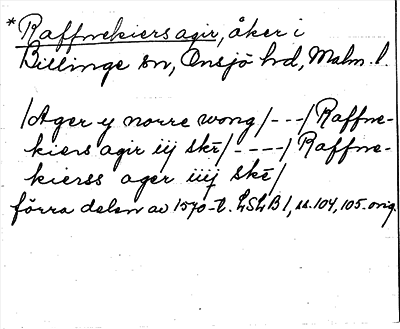 *Raffnekiers agir, åker i
Billinge sn, Onsjö hd, Malm. l.
/Ager y norre wong/---/Raffne-
kiers agir iij skē/----/Raffne-
kierss ager iiij skē/
förra delen av 1570-t. LSLB1, ss. 104, 105. orig.